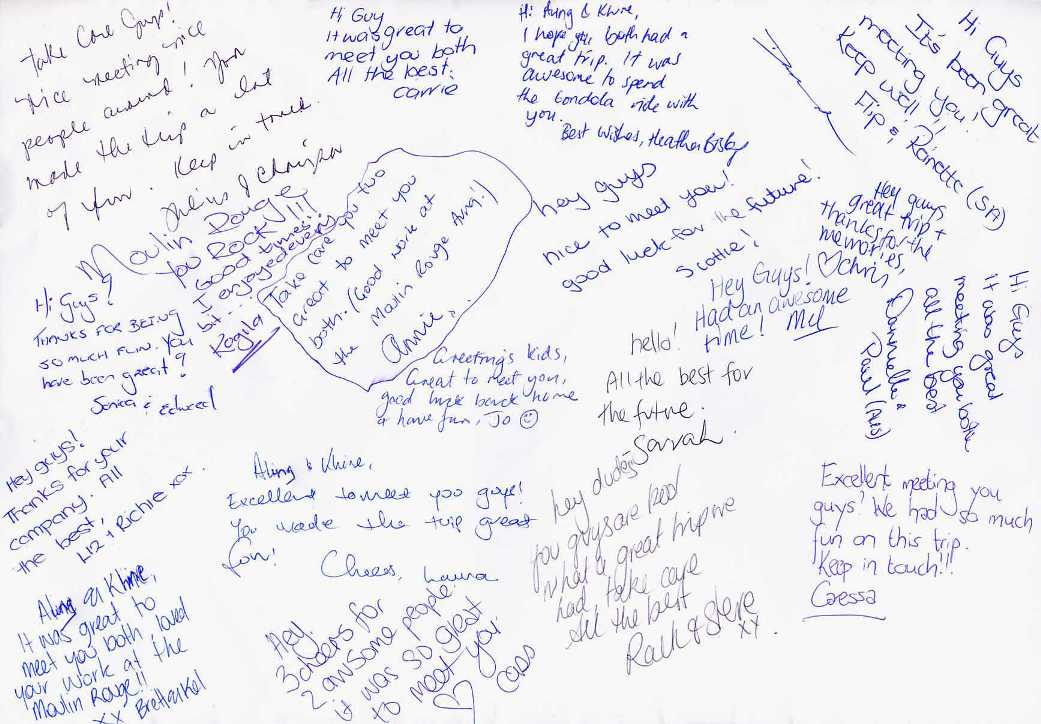 Take Care Guys!
Nice meeting nice
people around! You
made the trip a lot
of fun. Keep in touch.
Hi Guy
It was great to
meet you both
All the best.
Carrie
Hi Aung & Khine,
I hope you both had a
great trip. It was
awesome to spend
the Gondola ride with
you.
Best wishes, Heather Bisby
Hi Guys
It's been great
meeting you!
Keep well!
Flip & Rainette (SA)
Moulin Rouge
You ROCK!!!
Good times!!
I enjoyed every
bit...
Rogila
Take care you two
Great to meet you
both. (Good work at
the Moulin Rouge Aung!)
Annie.
hey guys
nice to meet you!
good luck for the future!
Scottie!
Hey guys
great trip +
thanks for the
memories,
♡ Chris
Hi Guys!
THANKS FOR BEING
SO MUCH FUN. YOU
have been great!
Hey Guys!
Had an awesome
time! Mel
Hi Guys
It was great
meeting you both
all the best
Dannielle &
Paul (AUS)
hello!
All the best for
the future.
Sarrah.
Greetings kids,
Great to meet you,
good luck back home
& have fun, Jo ☺
Hey guys!
Thanks for your
company. All
the best,
Liz + Richie xox
Aung & Khine,
Excellent to meet you guys!
You made the trip great
fun!
Cheers, Laura
hey dudes
you guys are
what a great trip we
had, take care
all the best
Rach & Steve
xx
Excellent meeting you
guys! We had so much
fun on this trip.
Keep in touch!!!
Caressa
Aung & Khine,
It was great to
meet you both loved
your work at the
Moulin Rouge!!
xx Brett & Kel
Hey.
3 cheers for
2 awsome people.
it was so great
to meet you.
♡ Cass